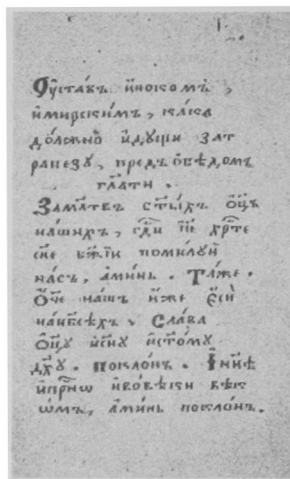 Оу҆ста́въ и҆нокомъ̀,
и҆мирскимъ, ка́кѡ
до́лжно и҆ду́щи зат
рапезу, предъ ѻ҆бѣ́домъ
гл҃ати.
Заⷨ҇атвъ ст҃ы́хъ ѻ҆ц҃ъ
на́шихъ, гд҇и і҆и҃с хр҇те
сн҃е бж҃їи поми́луй
на́съ, а҆ми́нь. Та́же.
Ѻ҆́ч҃е на́шъ и҆́же є҆сѝ
нанб҃сѣхъ. Сла́ва
ѻ҆ц҃у и҆сн҃у и҆ст҃о́му
дх҃у. поклонъ. И҆ ны́нѣ
и҆при́снѡ и҆вовѣ́ки вѣк
ѡмъ, а҆ми́нь покло́нъ.